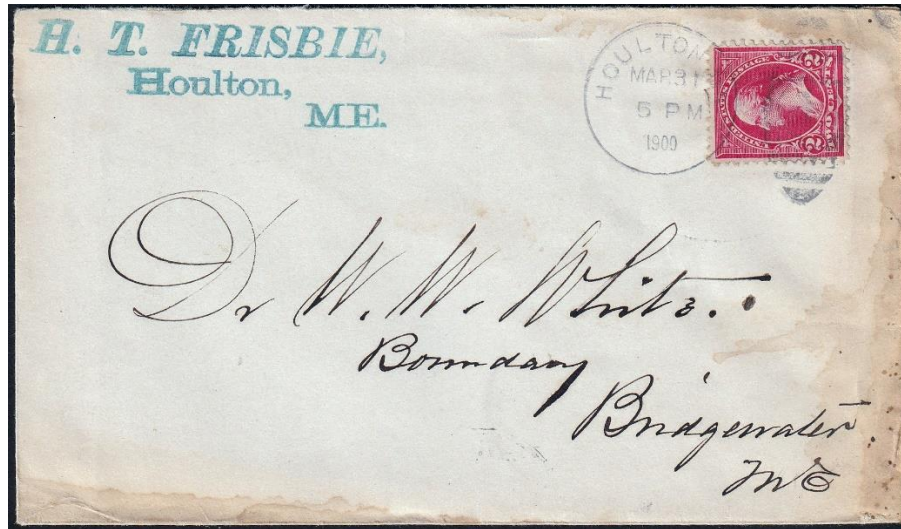 H. T. FRISBIE,
Houlton,
ME.
HOULTON
MAR 31
5 PM
1900
Dr W. W. White.
Boundary
Bridgewater
Me